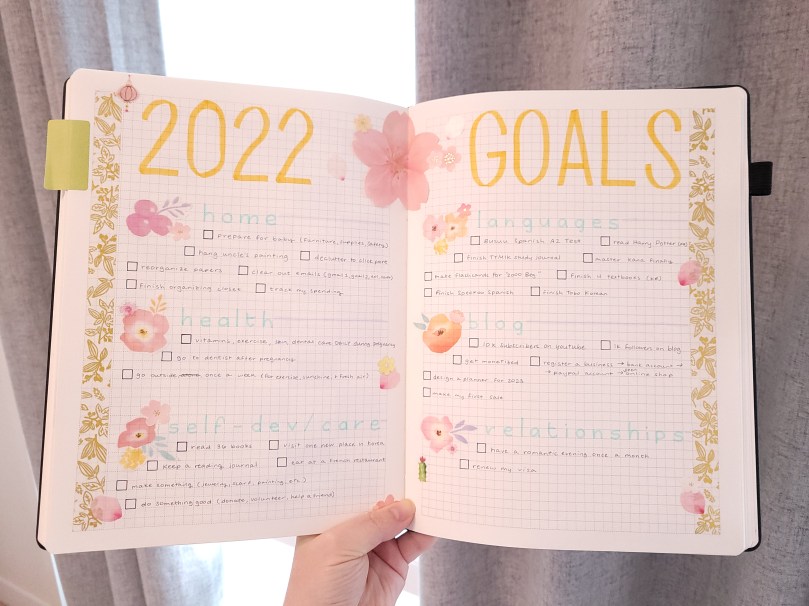 2022 GOALS
home
prepare for baby (furniture, supplies, safety)
hang uncle's painting
declutter
reorganize papers
clear out emails
finish organizing
track my spending
health
vitamins, exercise, skin, dental care during pregnancy
go to dentist after pregnancy
go outside once a week (for exercise, sunshine, + fresh air)
self-dev/care
read 36 books
visit one new place in Korea
keep a reading journal
eat at a French restaurant
make something (jewelry, scarf, painting, etc.)
do something good (donate, volunteer, help a friend)
languages
Busuu Spanish A2 Test
read Harry Potter
finish TTMIK study journal
master kana
make flashcards for "2000 Key"
finish 4 textbooks
finish Spanish
finish Kurean
blog
10K subscribers on youtube
1k followers on blog
get monetized
register a business → bank account →
→ paypal account → open online shop
design a planner for 2023
make my first sale
relationships
have a romantic evening once a month
renew my visa